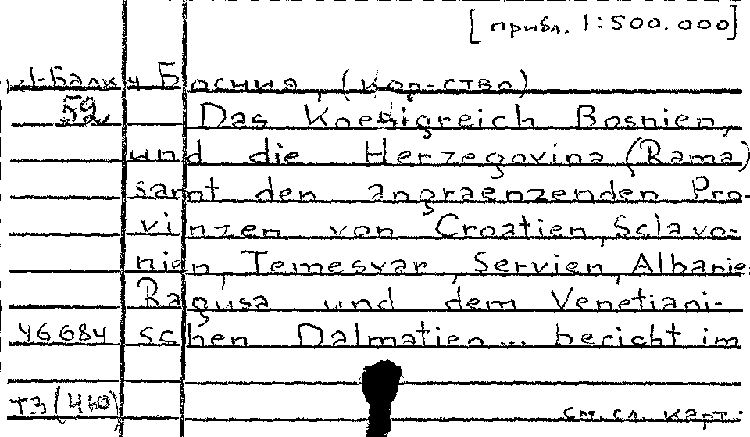 [прибл. 1:500.000]
Босния, (кор-ство)
52 Das Koenigreich Bosnien,
und die Herzegovina (Rama)
samt den angraenzenden Pro-
vinzen von Croatien, Sclavo-
nien, Temesvar, Servien, Albanien
Ragusa und dem Venetiani-
46684 schen Dalmatien... bericht im
ТЗ(4Ю) см. сл. карт.